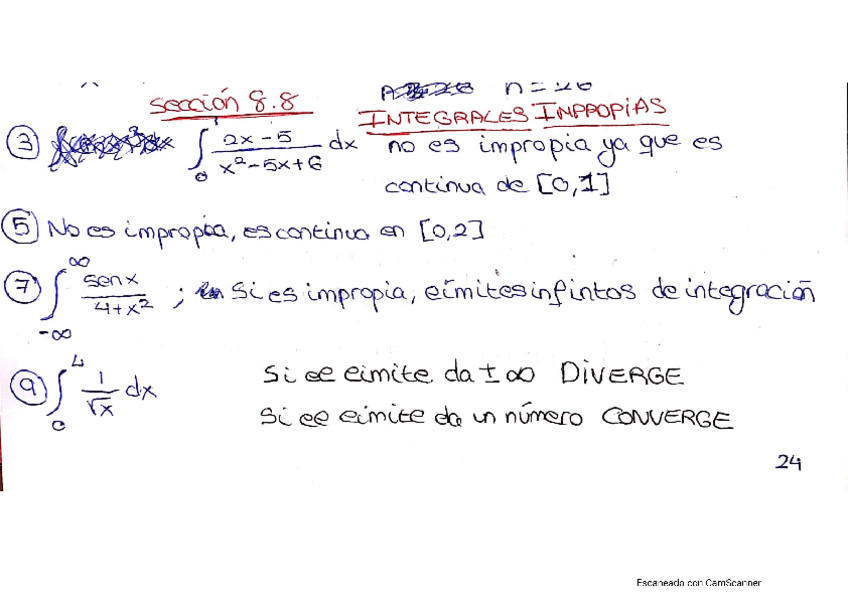 n = 26
Sección 8.8
INTEGRALES INPROPIAS
③ ∫₀¹ (2x - 5)/(x² - 5x + 6) dx no es impropia ya que es
continua de [0,1]
⑤ No es impropia, es continua en [0,2]
⑦ ∫_{-∞}^{∞} senx/(4+x²) ; Si es impropia, límites infintos de integración
⑨ ∫₀⁴ 1/√x dx Si el límite da ±∞ DIVERGE
Si el límite da un número CONVERGE
24
Escaneado con CamScanner